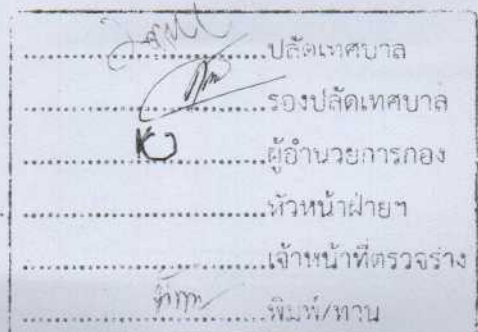 ปลัดเทศบาล
รองปลัดเทศบาล
ผู้อำนวยการกอง
หัวหน้าฝ่ายฯ
เจ้าหน้าที่ตรวจร่าง
พิมพ์/ทาน